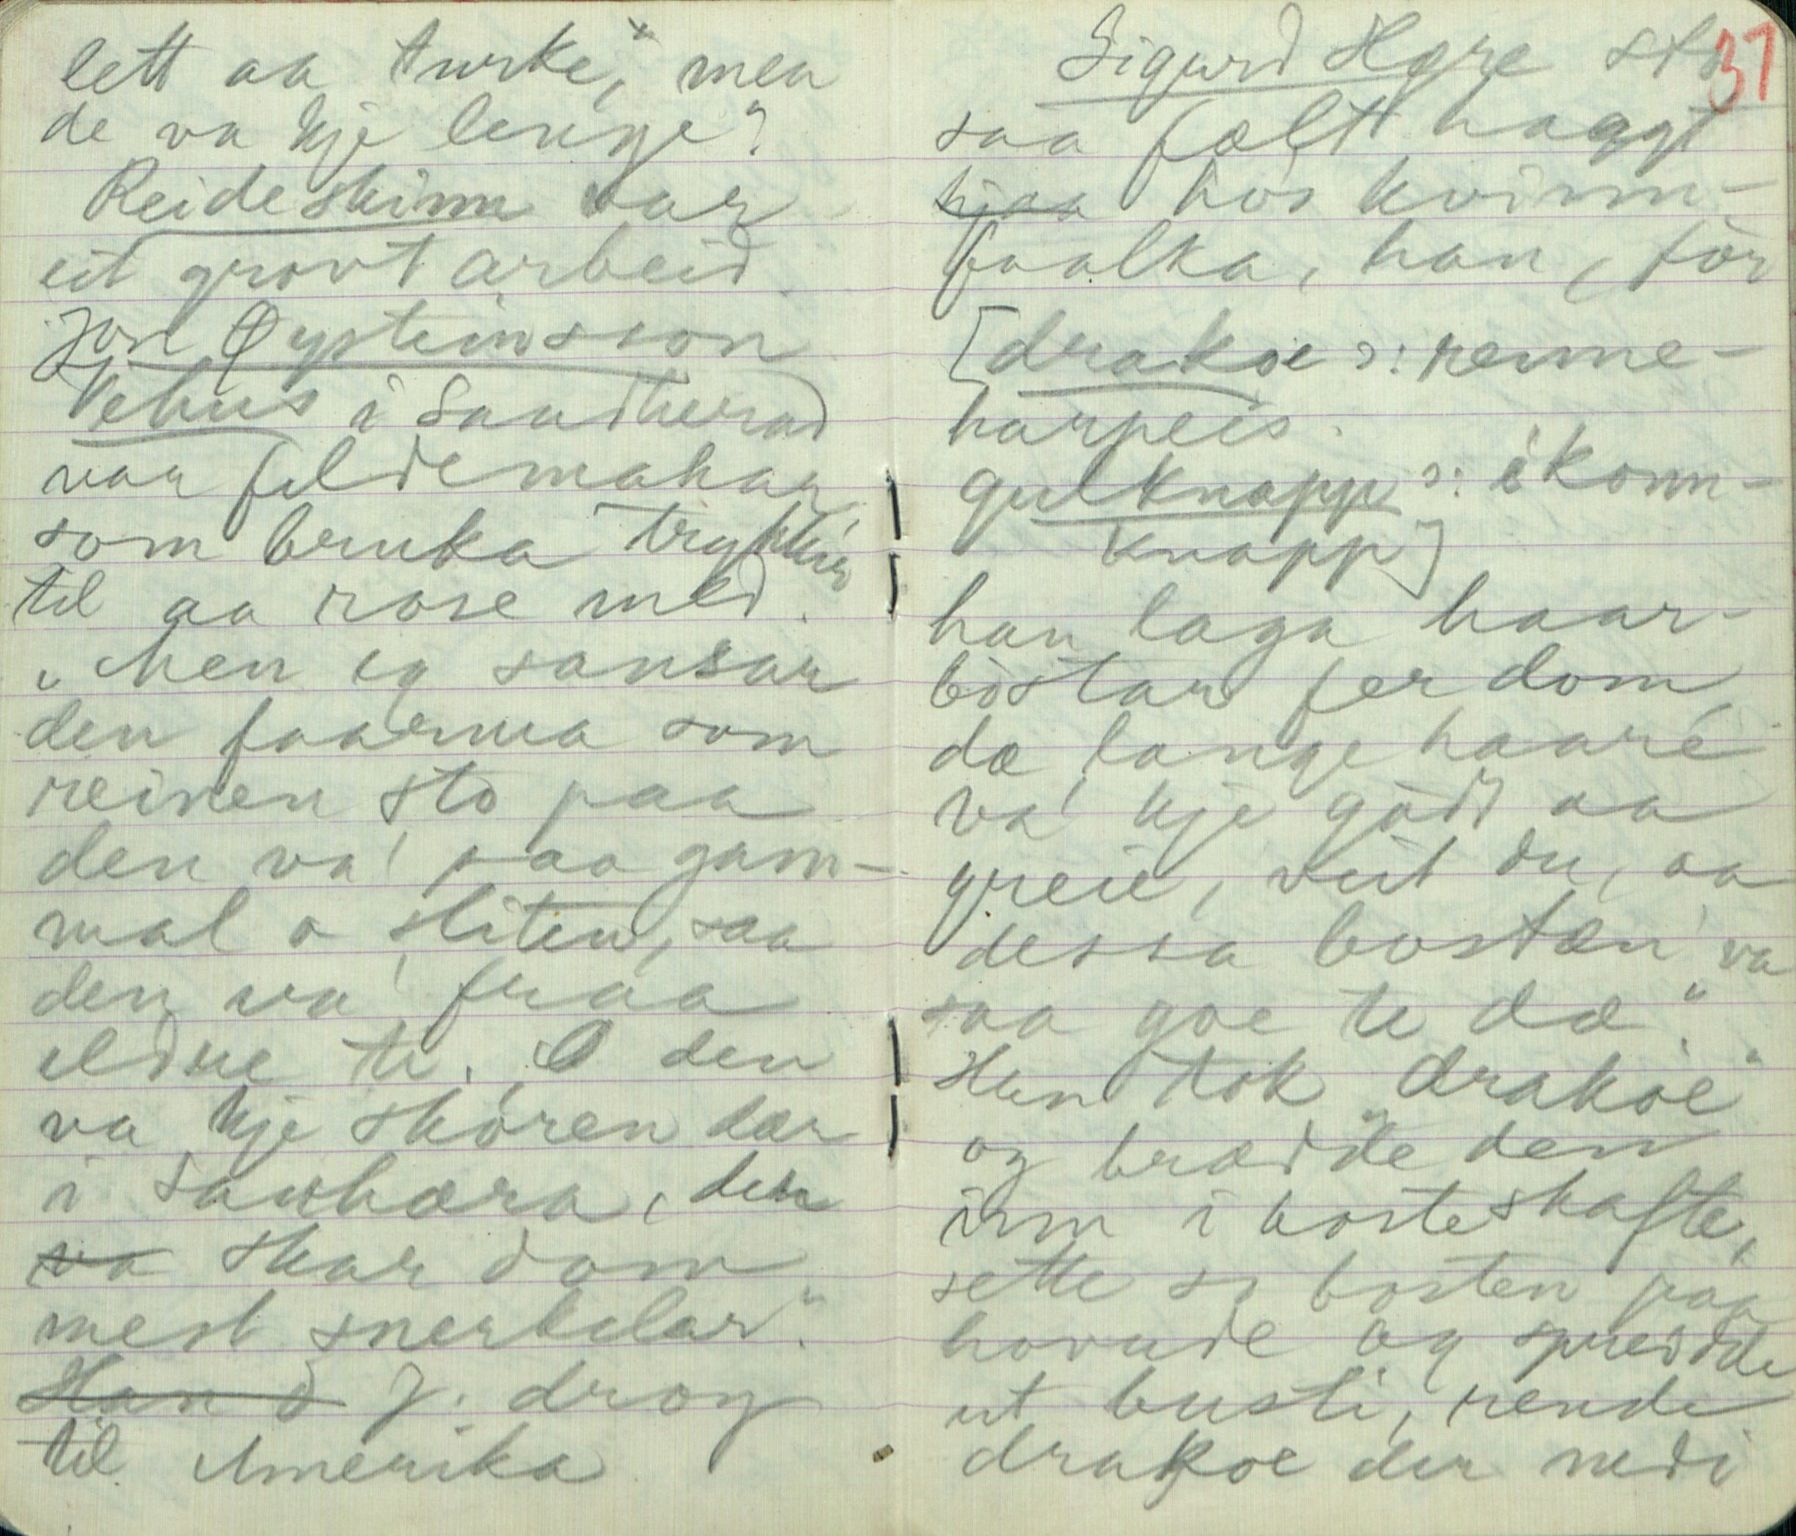 lett aa turke", men
de va kje lenge?
Reideskinn var
eit grovt arbeid.
Jon Øysteinsson
Vehus i Saudherad
var feldemakar
som bruka trykkjer
til aa rose med.
"Men eg sansar
den faarma som
reinen sto paa
den va' saa gam-
mal o sliten, saa
den va' fraa
eldue te. O den
va kje skoren dær
i Sauhæra, den
va skar dom
mest snerkelar".
Han d J. drog
til Amerika
37
Sigurd Høre sto
saa fælt høggt
hjaa hos kvinn-
foolka, han, for
[drakoe ɔ: renne-
harpeis.
gulknapp ɔ: ikorn-
knapp]
han laga haar-
bòstar fer dom,
dæ lange haare
va' kje godt aa
greie, veit du, aa
dessa bostæn' va
saa goe te dæ".
Han tok "drakoe"
og brædde den
inn i kosteskafte,
sette so bosten paa
hovude og spreidde
ut busti, rende
drakoe der nedi